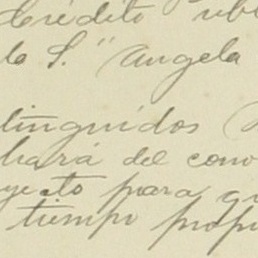 crédito
de S. "Angela
linguidos
hará del cono
yecto para qu
tiempo prop